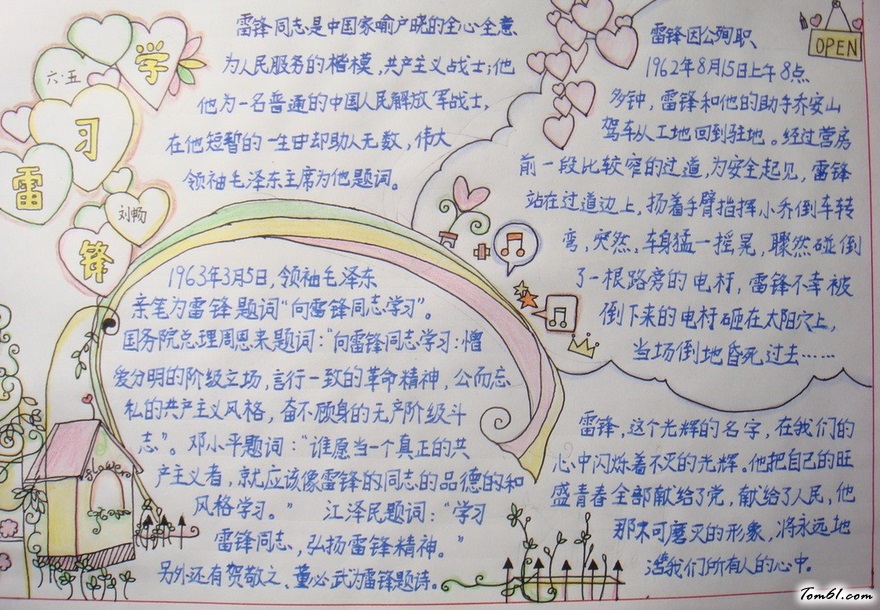 学习雷锋
六·五
刘畅
雷锋同志是中国家喻户晓的全心全意
为人民服务的楷模,共产主义战士;他
他为一名普通的中国人民解放军战士,
在他短暂的一生中却助人无数,伟大
领袖毛泽东主席为他题词。
1963年3月5日,领袖毛泽东
亲笔为雷锋题词“向雷锋同志学习”。
国务院总理周恩来题词:“向雷锋同志学习:憎
爱分明的阶级立场,言行一致的革命精神,公而忘
私的共产主义风格,奋不顾身的无产阶级斗
志”。邓小平题词:“谁愿当一个真正的共
产主义者,就应该像雷锋的同志的品德的和
风格学习。” 江泽民题词:“学习
雷锋同志,弘扬雷锋精神。”
另外还有贺敬之、董必武为雷锋题诗。
OPEN
雷锋因公殉职
1962年8月15日上午8点
多钟,雷锋和他的助手乔安山
驾车从工地回到驻地。经过营房
前一段比较窄的过道,为安全起见,雷锋
站在过道边上,扬着手臂指挥小乔倒车转
弯,突然,车身猛一摇晃,骤然碰倒
了一根路旁的电杆,雷锋不幸被
倒下来的电杆砸在太阳穴上,
当场倒地昏死过去……
雷锋,这个光辉的名字,在我们的
心中闪烁着不灭的光辉。他把自己的旺
盛青春全部献给了党,献给了人民,他
那不可磨灭的形象,将永远地
活我们所有人的心中。
Tom61.com